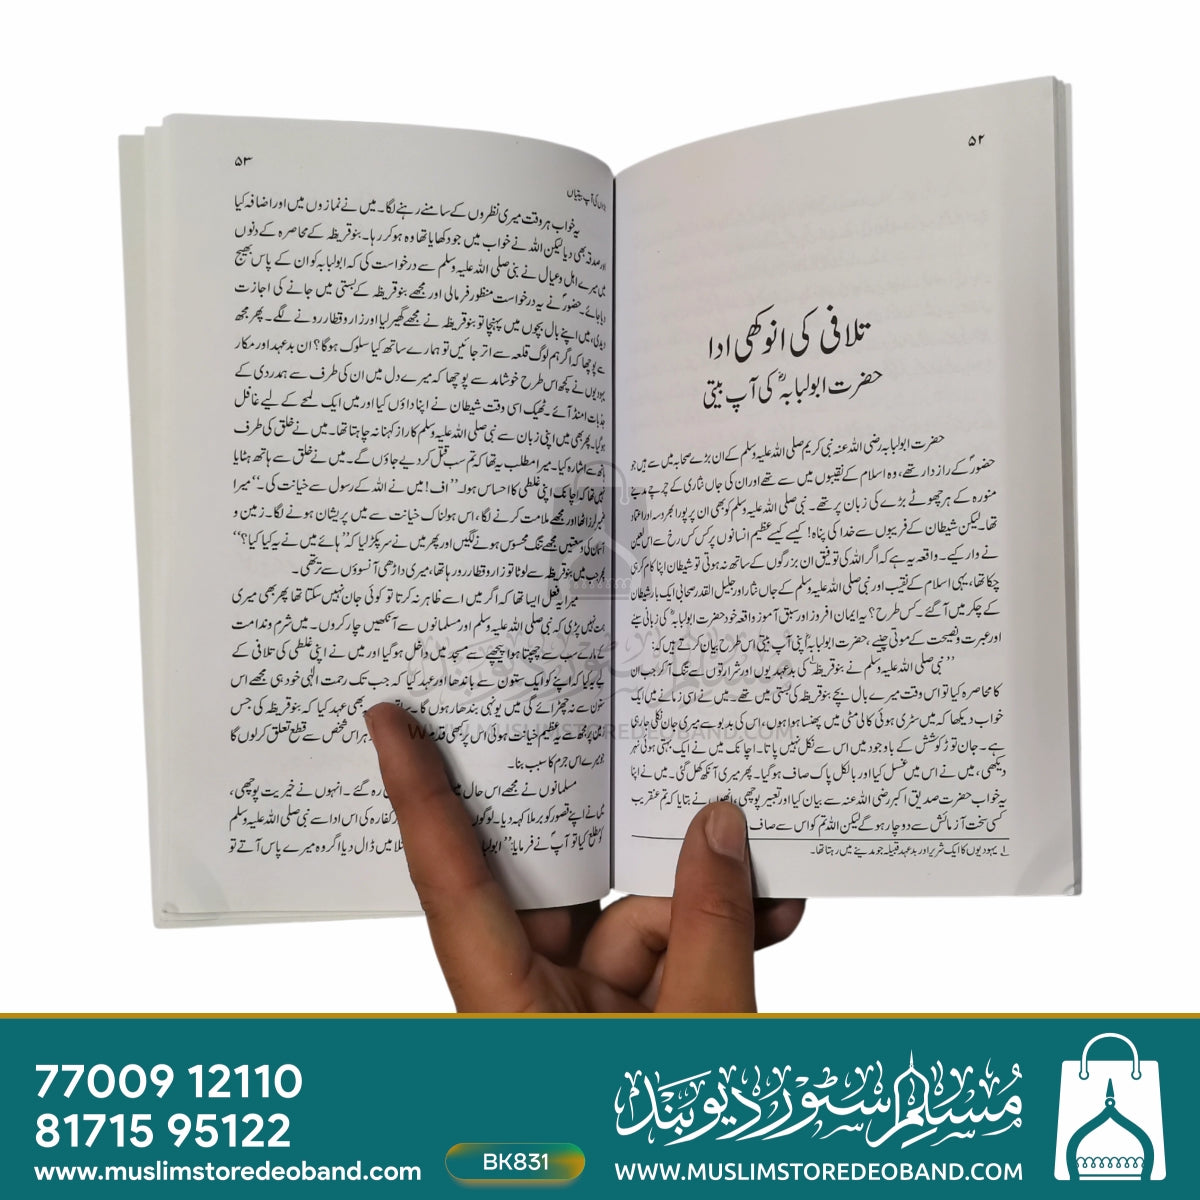 ۵۲
تلافی کی انوکھی ادا
حضرت ابولبابہؓ کی آپ بیتی
حضرت ابولبابہ رضی اللہ عنہ نبی کریم صلی اللہ علیہ وسلم کے ان بڑے صحابہ میں سے ہیں جو
حضورؐ کے رازدار تھے، وہ اسلام کے نقیبوں میں سے تھے اور ان کی جاں نثاری کے چرچے مدینے
منورہ کے ہر چھوٹے بڑے کی زبان پر تھے۔ نبی صلی اللہ علیہ وسلم کو بھی ان پر پورا بھروسہ اور اعتماد
تھا۔ لیکن شیطان کے فریبوں سے خدا کی پناہ! کیسے کیسے عظیم انسانوں پر کس کس رخ سے اس لعین
نے وار کیے۔ واقعہ یہ ہے کہ اگر اللہ کی توفیق ان بزرگوں کے ساتھ نہ ہوتی تو شیطان اپنا کام کر ہی
چکا تھا، یہی اسلام کے نقیب اور نبی صلی اللہ علیہ وسلم کے جاں نثار اور جلیل القدر صحابی ایک بار شیطان
کے چکر میں آ گئے۔ کس طرح؟ یہ ایمان افروز اور سبق آموز واقعہ خود حضرت ابولبابہؓ کی زبانی سنیے
اور عبرت و نصیحت کے موتی چنیے، حضرت ابولبابہؓ اپنی آپ بیتی اس طرح بیان کرتے ہیں کہ:
’’نبی صلی اللہ علیہ وسلم نے بنو قریظہ کی بدعہدیوں اور شرارتوں سے تنگ آ کر جب ان
کا محاصرہ کیا تو اس وقت میرے بال بچے بنو قریظہ کی بستی میں تھے۔ میں نے اسی زمانے میں ایک
خواب دیکھا کہ میں سڑی ہوئی کالی مٹی میں پھنسا ہوا ہوں، اس کی بدبو سے میری جان نکلی جا رہی
ہے۔ جان توڑ کوشش کے باوجود میں اس سے نکل نہیں پاتا۔ اچانک میں نے ایک بہتی ہوئی نہر
دیکھی، میں نے اس میں غسل کیا اور بالکل پاک صاف ہو گیا۔ پھر میری آنکھ کھل گئی۔ میں نے اپنا
یہ خواب حضرت صدیق اکبر رضی اللہ عنہ سے بیان کیا اور تعبیر پوچھی، انھوں نے بتایا کہ تم عنقریب
کسی سخت آزمائش سے دوچار ہو گے لیکن اللہ تم کو اس سے صاف
یہودیوں کا ایک شریر اور بدعہد قبیلہ جو مدینے میں رہتا تھا۔
۵۳
کی آپ بیتیاں
یہ خواب ہر وقت میری نظروں کے سامنے رہنے لگا۔ میں نے نمازوں میں اور اضافہ کیا
اور صدقہ بھی دیا لیکن اللہ نے خواب میں جو دکھایا تھا وہ ہو کر رہا۔ بنو قریظہ کے محاصرہ کے دنوں
میں میرے اہل و عیال نے نبی صلی اللہ علیہ وسلم سے درخواست کی کہ ابولبابہ کو ان کے پاس بھیج
دیا جائے۔ حضورؐ نے یہ درخواست منظور فرمالی اور مجھے بنو قریظہ کے بستی میں جانے کی اجازت
دیدی، میں اپنے بال بچوں میں پہنچا تو بنو قریظہ نے مجھے گھیر لیا اور زار و قطار رونے لگے۔ پھر مجھ
سے پوچھا کہ اگر ہم لوگ قلعہ سے اتر جائیں تو ہمارے ساتھ کیا سلوک ہوگا؟ ان بدعہد اور مکار
یہودیوں نے کچھ اس طرح خوشامد سے پوچھا کہ میرے دل میں ان کی طرف سے ہمدردی کے
جذبات امنڈ آئے۔ ٹھیک اسی وقت شیطان نے اپنا داؤں کیا اور میں ایک لمحے کے لیے غافل
ہوگیا۔ پھر بھی میں اپنی زبان سے نبی صلی اللہ علیہ وسلم کا راز کہنا نہ چاہتا تھا۔ میں نے حلق کی طرف
ہاتھ سے اشارہ کیا۔ میرا مطلب یہ تھا کہ تم سب قتل کر دیے جاؤ گے۔ میں نے حلق سے ہاتھ ہٹایا
نہیں تھا کہ اچانک اپنی غلطی کا احساس ہوا۔ ’’اف! میں نے اللہ کے رسول سے خیانت کی۔‘‘ میرا
ضمیر لرز اٹھا اور مجھے ملامت کرنے لگا، اس ہولناک خیانت سے میں پریشان ہونے لگا۔ زمین و
آسمان کی وسعتیں مجھے تنگ محسوس ہونے لگیں اور پھر میں نے سر پکڑ لیا کہ ’’ہائے میں نے یہ کیا کیا؟‘‘
پھر جب میں بنو قریظہ سے لوٹا تو زار و قطار رو رہا تھا، میری داڑھی آنسوؤں سے تر تھی۔
میرا یہ فعل ایسا تھا کہ اگر میں اسے ظاہر نہ کرتا تو کوئی جان نہیں سکتا تھا پھر بھی میری
ہمت نہیں پڑی کہ نبی صلی اللہ علیہ وسلم اور مسلمانوں سے آنکھیں چار کروں۔ میں شرم و ندامت
کے مارے سب سے چھپتا ہوا پیچھے سے مسجد میں داخل ہو گیا اور میں نے اپنی غلطی کی تلافی کے
لیے یہ کیا کہ اپنے کو ایک ستون سے باندھا اور عہد کیا کہ جب تک رحمت الٰہی خود ہی مجھے اس
ستون سے نہ چھڑائے گی میں یونہی بندھا رہوں گا۔ یہ بھی عہد کیا کہ بنو قریظہ کی جس
زمین پر مجھ سے یہ عظیم خیانت ہوئی اس پر کبھی قدم ہر اس شخص سے قطع تعلق کر لوں گا
جو میرے اس جرم کا سبب بنا۔
مسلمانوں نے مجھے اس حال میں رہ گئے۔ انہوں نے خیریت پوچھی،
میں نے اپنے قصور کو برملا کہہ دیا۔ لوگوں کفارہ کی اس ادا سے نبی صلی اللہ علیہ وسلم
کو مطلع کیا تو آپؐ نے فرمایا: ’’ابولبابہ میں ڈال دیا اگر وہ میرے پاس آتے تو
WWW.MUSLIMSTOREDEOBAND.COM
77009 12110
81715 95122
www.muslimstoredeoband.com
BK831
مسلم سٹور دیوبند
WWW.MUSLIMSTOREDEOBAND.COM